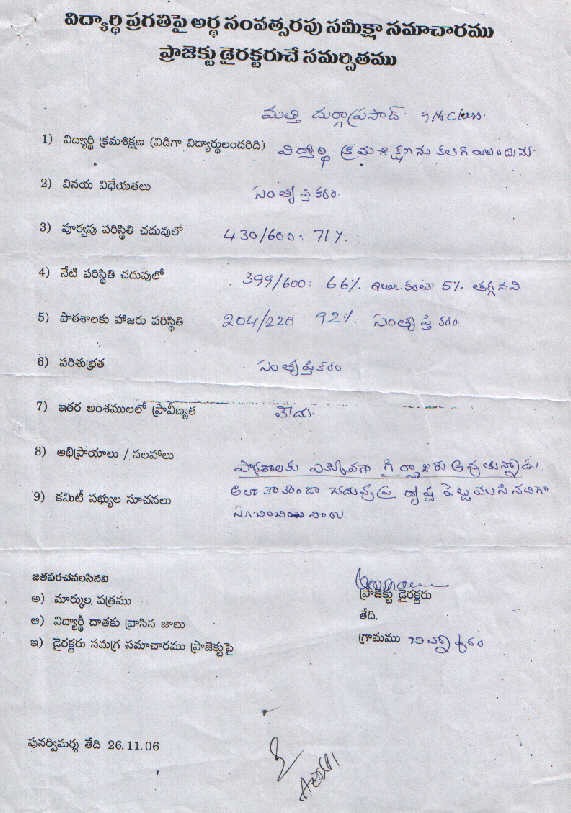 విద్యార్థి ప్రగతిపై అర్థ సంవత్సరపు సమీక్షా సమాచారము
ప్రాజెక్టు డైరక్టరుచే సమర్పితము
మత్తి దుర్గాప్రసాద్ 9th Class
1) విద్యార్థి క్రమశిక్షణ (విడిగా విద్యార్థులందరిది) విద్యార్థి క్రమశిక్షణను కలిగియుండును
2) వినయ విధేయతలు సంతృప్తికరం
3) పూర్వపు పరిస్థితి చదువులో 430/600: 71%.
4) నేటి పరిస్థితి చదువులో 399/600: 66% 5% తగ్గినది
5) పాఠశాలకు హాజరు పరిస్థితి 204/220 92% సంతృప్తికరం
6) పరిశుభ్రత సంతృప్తికరం
7) ఇతర అంశములలో ప్రావీణ్యత లేదు.
8) అభిప్రాయాలు / సలహాలు
9) కమిటీ సభ్యుల సూచనలు
జతపరచవలసినవి
అ) మార్కుల పత్రము
ఆ) విద్యార్థి దాతకు వ్రాసిన జాబు
ఇ) డైరక్టరు సమగ్ర సమాచారము ప్రాజెక్టుపై
ప్రాజెక్టు డైరక్టరు
తేది.
గ్రామము
పునర్విమర్శ తేది 26.11.06